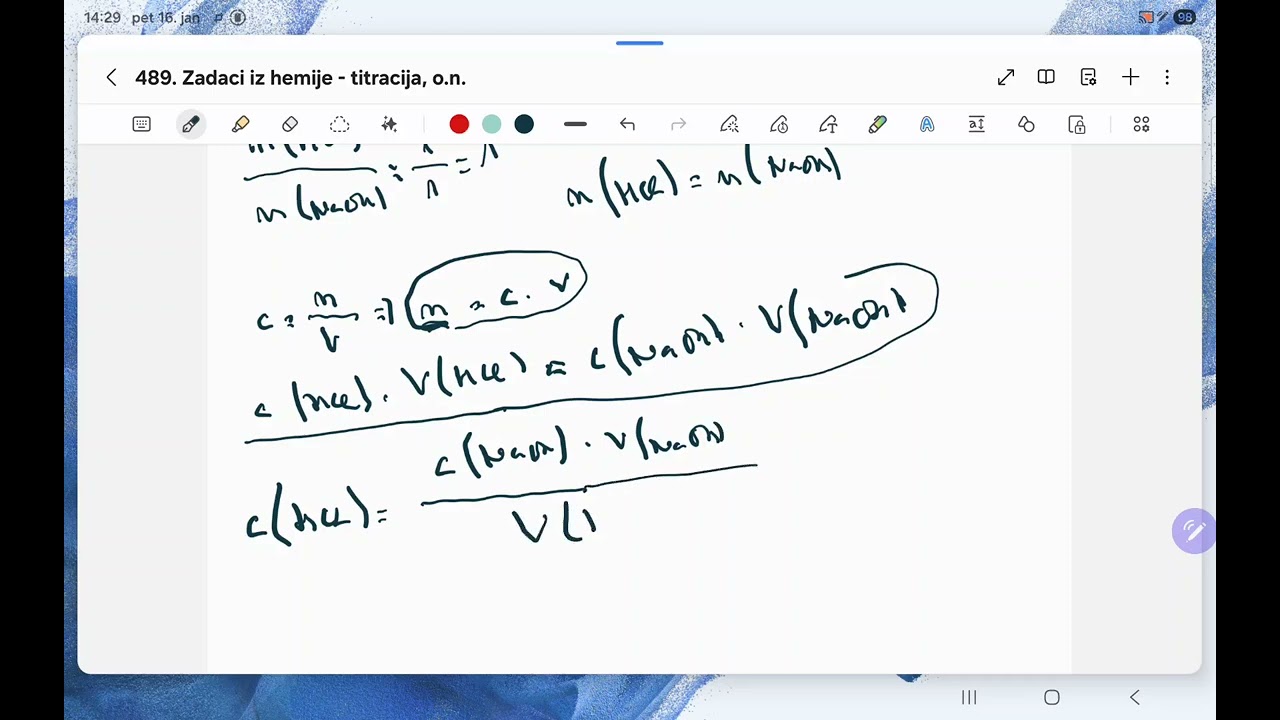 14:29 pet 16. jan
98
489. Zadaci iz hemije - titracija, o.n.
n(NaOH) = 1/1 = 1
n(HCl) = n(NaOH)
c = n/V => n = c · V
c(HCl) · V(HCl) = c(NaOH) · V(NaOH)
c(NaOH) · V(NaOH)
c(HCl) =
V(